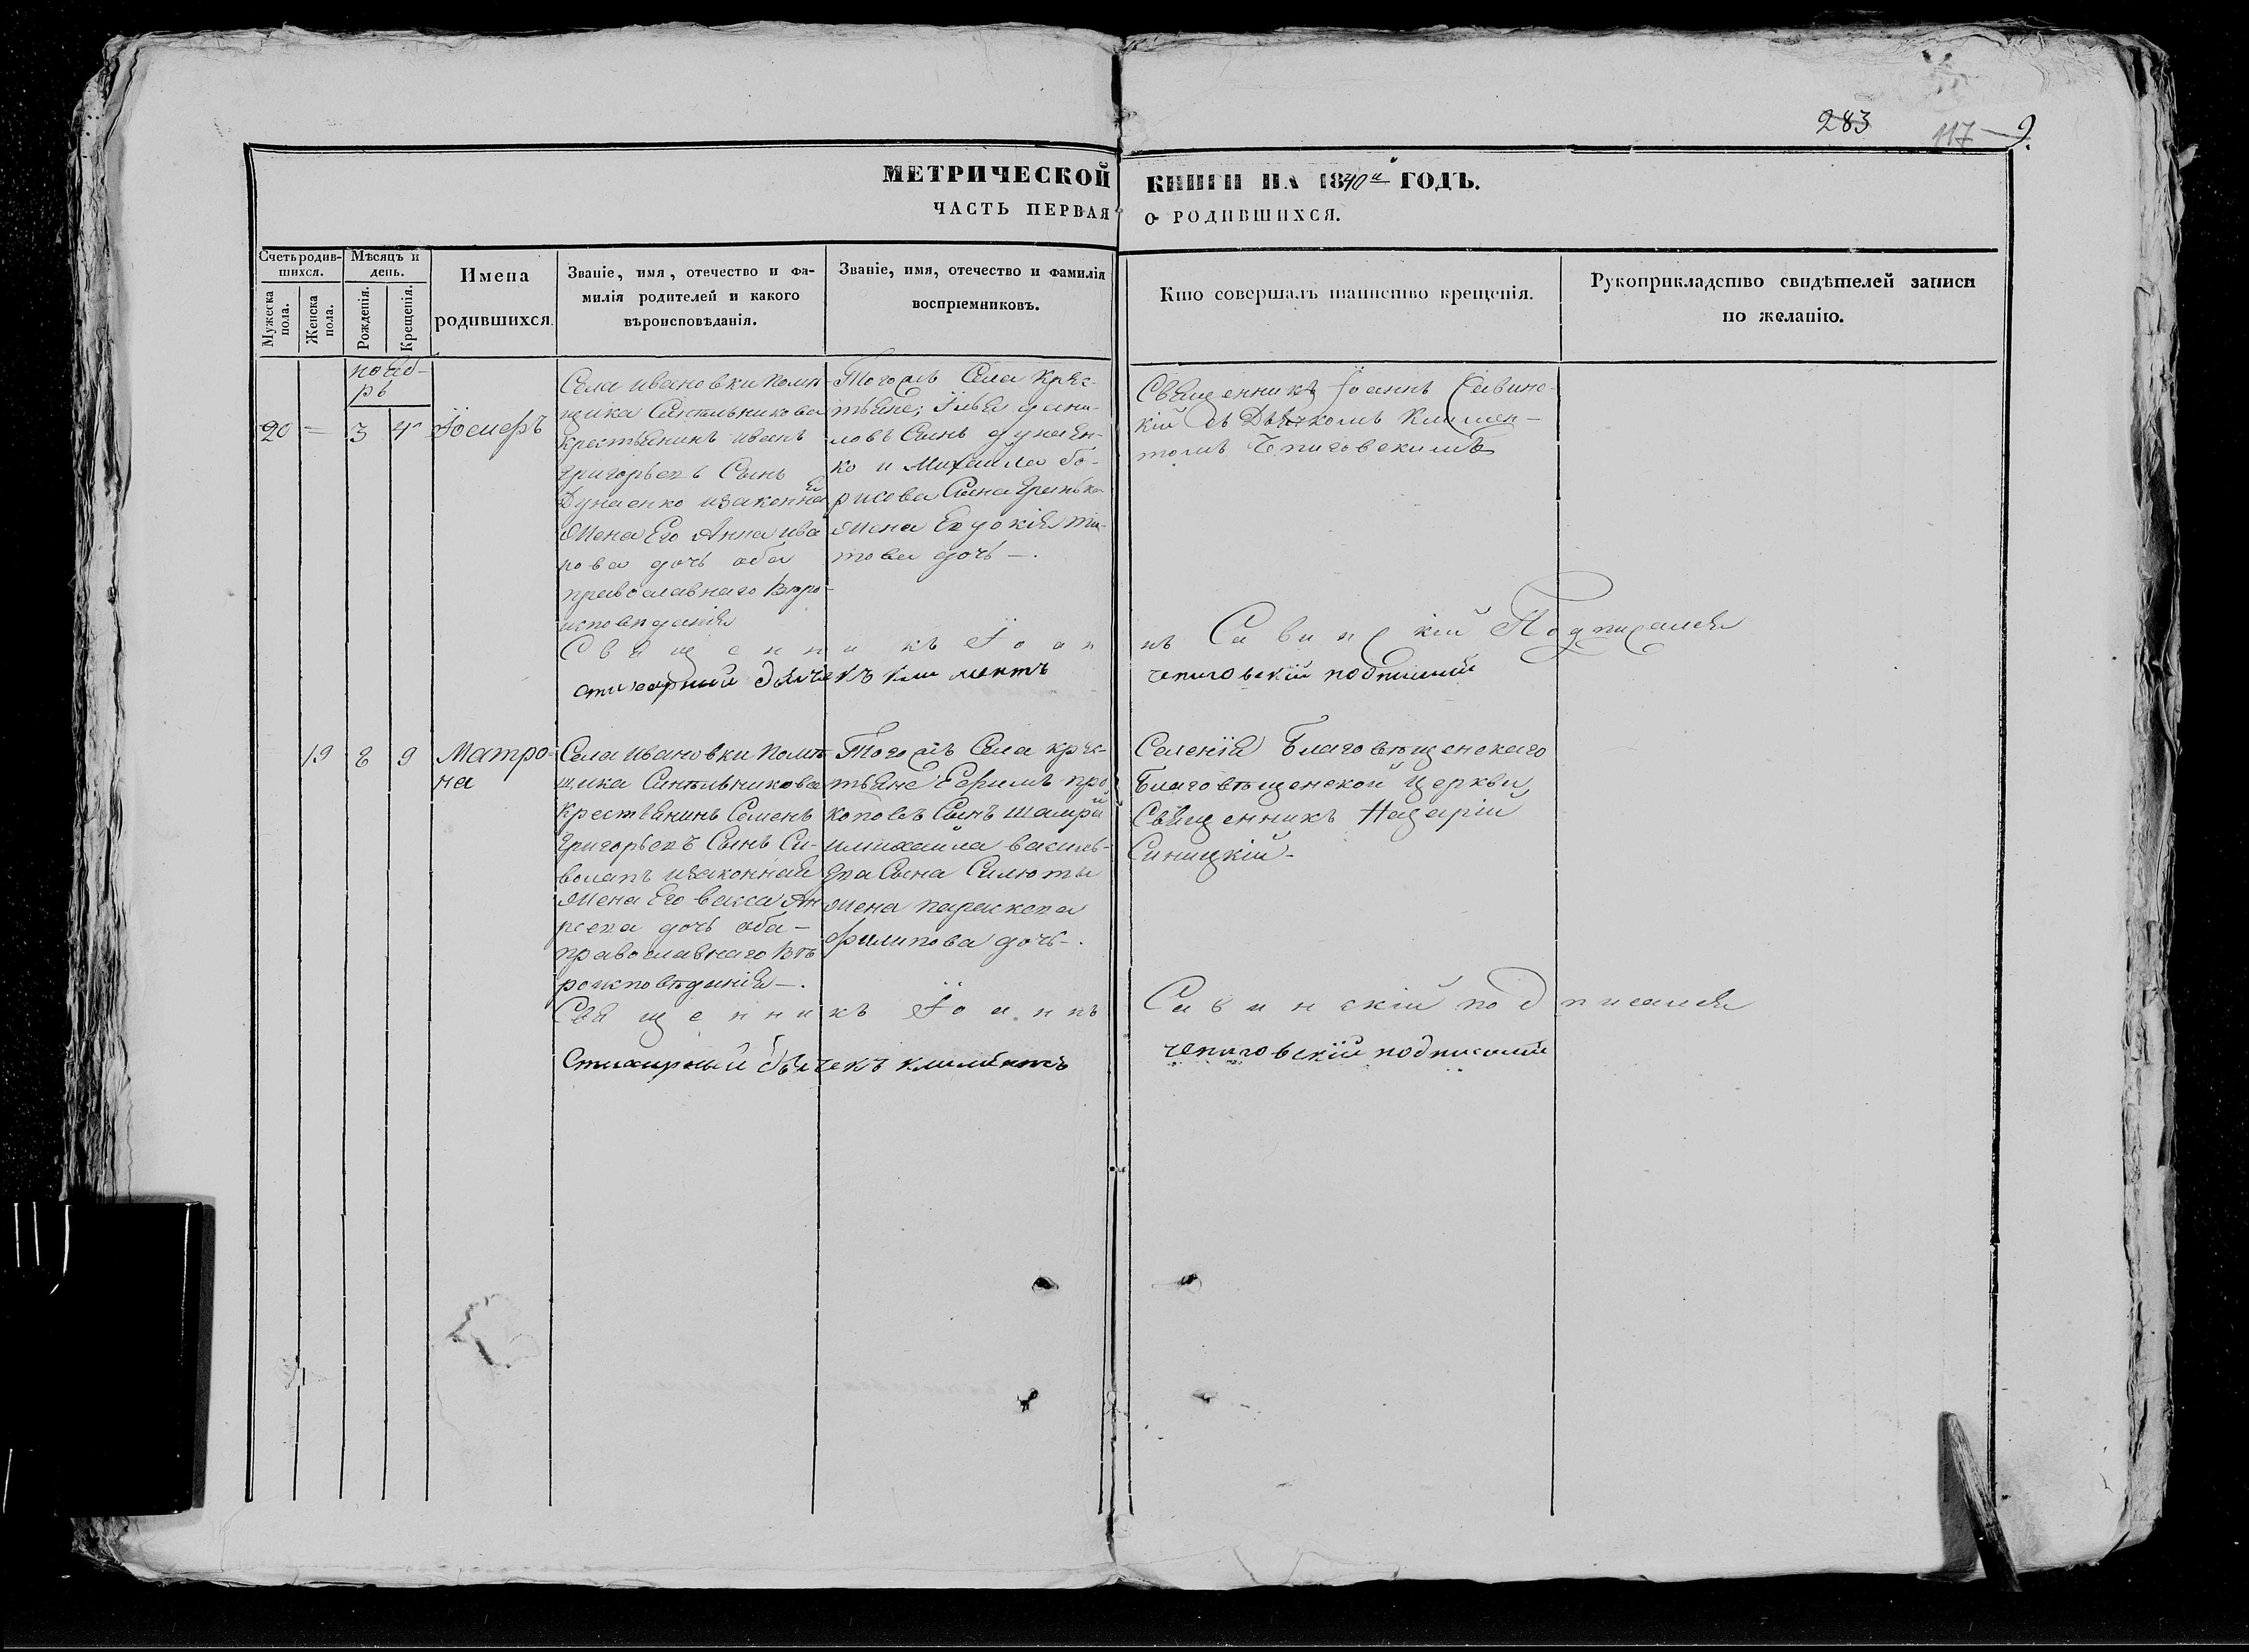 283
117 — 9.
МЕТРИЧЕСКОЙ КНИГИ НА 1840й ГОДЪ.
ЧАСТЬ ПЕРВАЯ о РОДИВШИХСЯ.
Счетъ родившихся.
Мужеска пола.
Женска пола.
Мѣсяцъ и день.
Рожденія.
Крещенія.
Имена
родившихся.
Званіе, имя, отечество и фа-
милія родителей и какого
вѣроисповѣданія.
Званіе, имя, отечество и фамилія
воспріемниковъ.
Кто совершалъ таинство крещенія.
Рукоприкладство свидѣтелей записи
по желанію.
нояб-
рь
20 — 3 4 Іосифъ
Села Ивановки помѣ-
щика Синельникова
крестьянинъ иванъ
Григорьевъ Сынъ
Дунаенко изаконная
Жена Его Анна ива
нова дочь оба
православнаго Вѣро-
исповѣданія
Тогожъ Села крес-
тьяне; Илья дани-
ловъ Сынъ дунаен-
ко и Михаила бо-
рисова Сына Гринька
Жена Евдокія ти-
това дочь —.
Священникъ Іоаннъ Савинс-
кій съ Дьячкомъ Климен-
томъ Чепиговскимъ
Священникъ Іоаннъ Савинскій Подписался
стихарный дьячекъ климентъ чепиговскій подписалй
19 8 9 Матро-
на
Села Ивановки помѣ-
щика Синельникова
Крестьянинъ Семенъ
Григорьевъ Сынъ Си-
волапъ изаконная
Жена Его васса Ан
реева дочь оба —
православнаго Вѣ-
роисповѣданія —.
Тогожъ Села крес-
тьяне Ефимъ про
коповъ Сынъ шамрай
имихайла василь-
ева Сына Силюты
Жена параскева
филипова дочь —.
Селенія Благовѣщенскаго
Благовѣщенской Церкви,
Священникъ Назарій
Синицкій —
Священникъ Іоаннъ Савинскій подписался
Стихарный дьячекъ климентъ чепиговскій подписалй